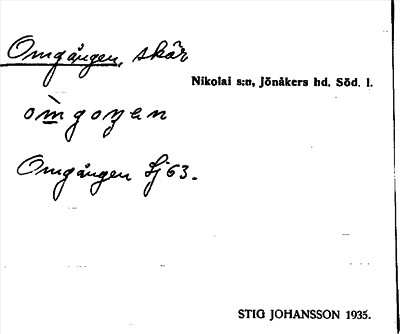 Omgången, skär
Nikolai s:n, Jönåkers hd. Söd. l.
òmgoŋen
Omgången Sj 63.
STIG JOHANSSON 1935.